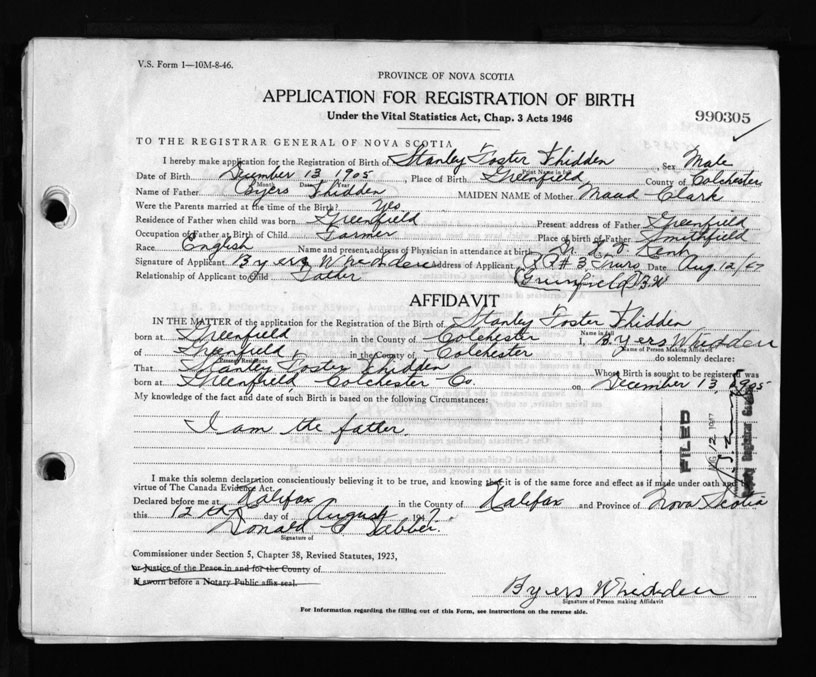 V.S. Form 1—10M-8-46.
PROVINCE OF NOVA SCOTIA
APPLICATION FOR REGISTRATION OF BIRTH
Under the Vital Statistics Act, Chap. 3 Acts 1946
990305
TO THE REGISTRAR GENERAL OF NOVA SCOTIA
I hereby make application for the Registration of Birth of Stanley Foster Whidden Sex Male
Print Name in full
Date of Birth December 13 1905, Place of Birth Greenfield County of Colchester
Month Day Year
Name of Father Byers Whidden MAIDEN NAME of Mother Maud Clark
Were the Parents married at the time of the Birth? Yes
Residence of Father when child was born Greenfield Present address of Father Greenfield
Occupation of Father at Birth of Child Farmer Place of birth of Father Smithfield
Race English Name and present address of Physician in attendance at birth
Signature of Applicant Byers Whidden Address of Applicant R R # 3, Truro Date Aug. 12/47
Relationship of Applicant to Child Father Greenfield
AFFIDAVIT
IN THE MATTER of the application for the Registration of the Birth of Stanley Foster Whidden
Name in full
born at Greenfield in the County of Colchester I, Byers Whidden
Name of Person Making Affidavit
of Greenfield, in the County of Colchester do solemnly declare:
Present Residence
That Stanley Foster Whidden Whose Birth is sought to be registered was
born at Greenfield Colchester Co. on December 13, 1905
My knowledge of the fact and date of such Birth is based on the following Circumstances:
I am the father.
FILED
I make this solemn declaration conscientiously believing it to be true, and knowing that it is of the same force and effect as if made under oath and by
virtue of The Canada Evidence Act.
Declared before me at Halifax in the County of Halifax and Province of Nova Scotia
this 12th day of August 1947.
Donald
Signature of
Commissioner under Section 5, Chapter 38, Revised Statutes, 1923,
or Justice of the Peace in and for the County of
If sworn before a Notary Public affix seal.
Byers Whidden
Signature of Person making Affidavit
For Information regarding the filling out of this Form, see instructions on the reverse side.